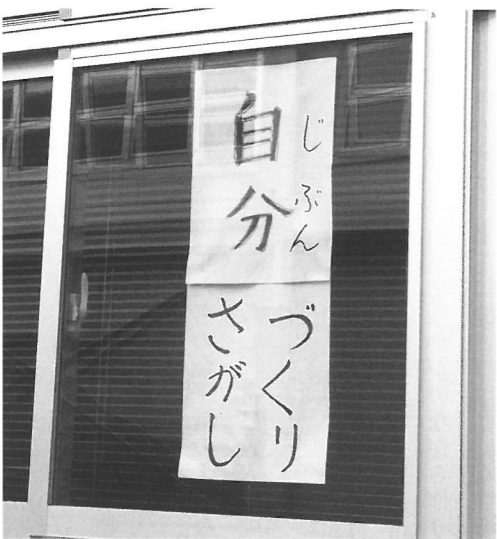 自分
じぶん
づくり
さがし